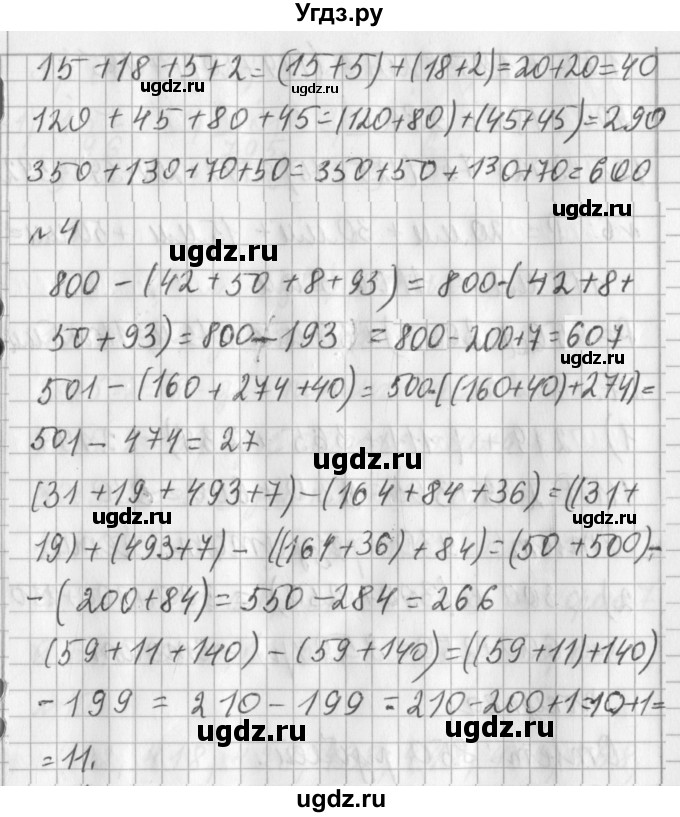 Угдз.ру
15+18+5+2=(15+5)+(18+2)=20+20=40
ugdz.ru ugdz.ru
120+45+80+45=(120+80)+(45+45)=290
350+130+70+50=350+50+130+70=600
ugdz.ru
№4
ugdz.ru
800-(42+50+8+93)=800-(42+8+
50+93)=800-193=800-200+7=607
ugdz.ru
501-(160+274+40)=500-((160+40)+274)=
501-474=27
ugdz.ru
(31+19+493+7)-(164+84+36)=((31+
ugdz.ru ugdz.ru
19)+(493+7)-((164+36)+84)=(50+500)-
-(200+84)=550-284=266
ugdz.ru
(59+11+140)-(59+140)=((59+11)+140)
-199=210-199=210-200+1=10+1=
ugdz.ru ugdz.ru
=11.
ugdz.ru